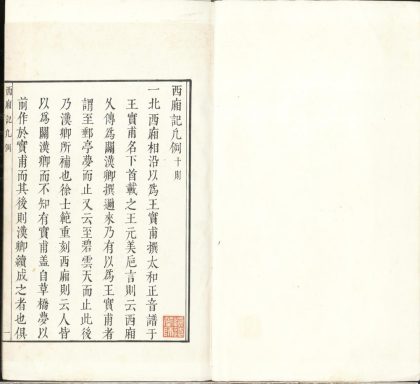 西廂記凡例十則
一北西廂相沿以爲王實甫撰太和正音譜于
王實甫名下首載之王元美巵言則云西廂
久傳爲關漢卿撰邇來乃有以爲王實甫者
謂至郵亭夢而止又云至碧雲天而止此後
乃漢卿所補也徐士範重刻西廂則云人皆
以爲關漢卿而不知有實甫蓋自草橋夢以
前作於實甫而其後則漢卿續成之者也俱
西廂記凡例
一